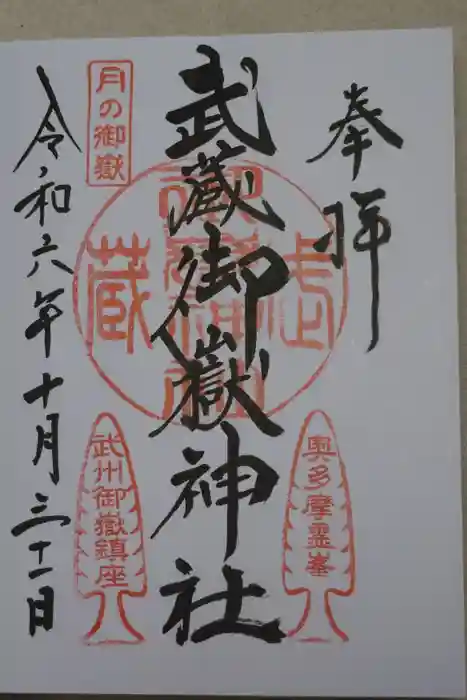 奉拝
武蔵御嶽神社
令和六年十月三十一日
月の御嶽
奥多摩霊峯
武州御嶽鎮座
武蔵